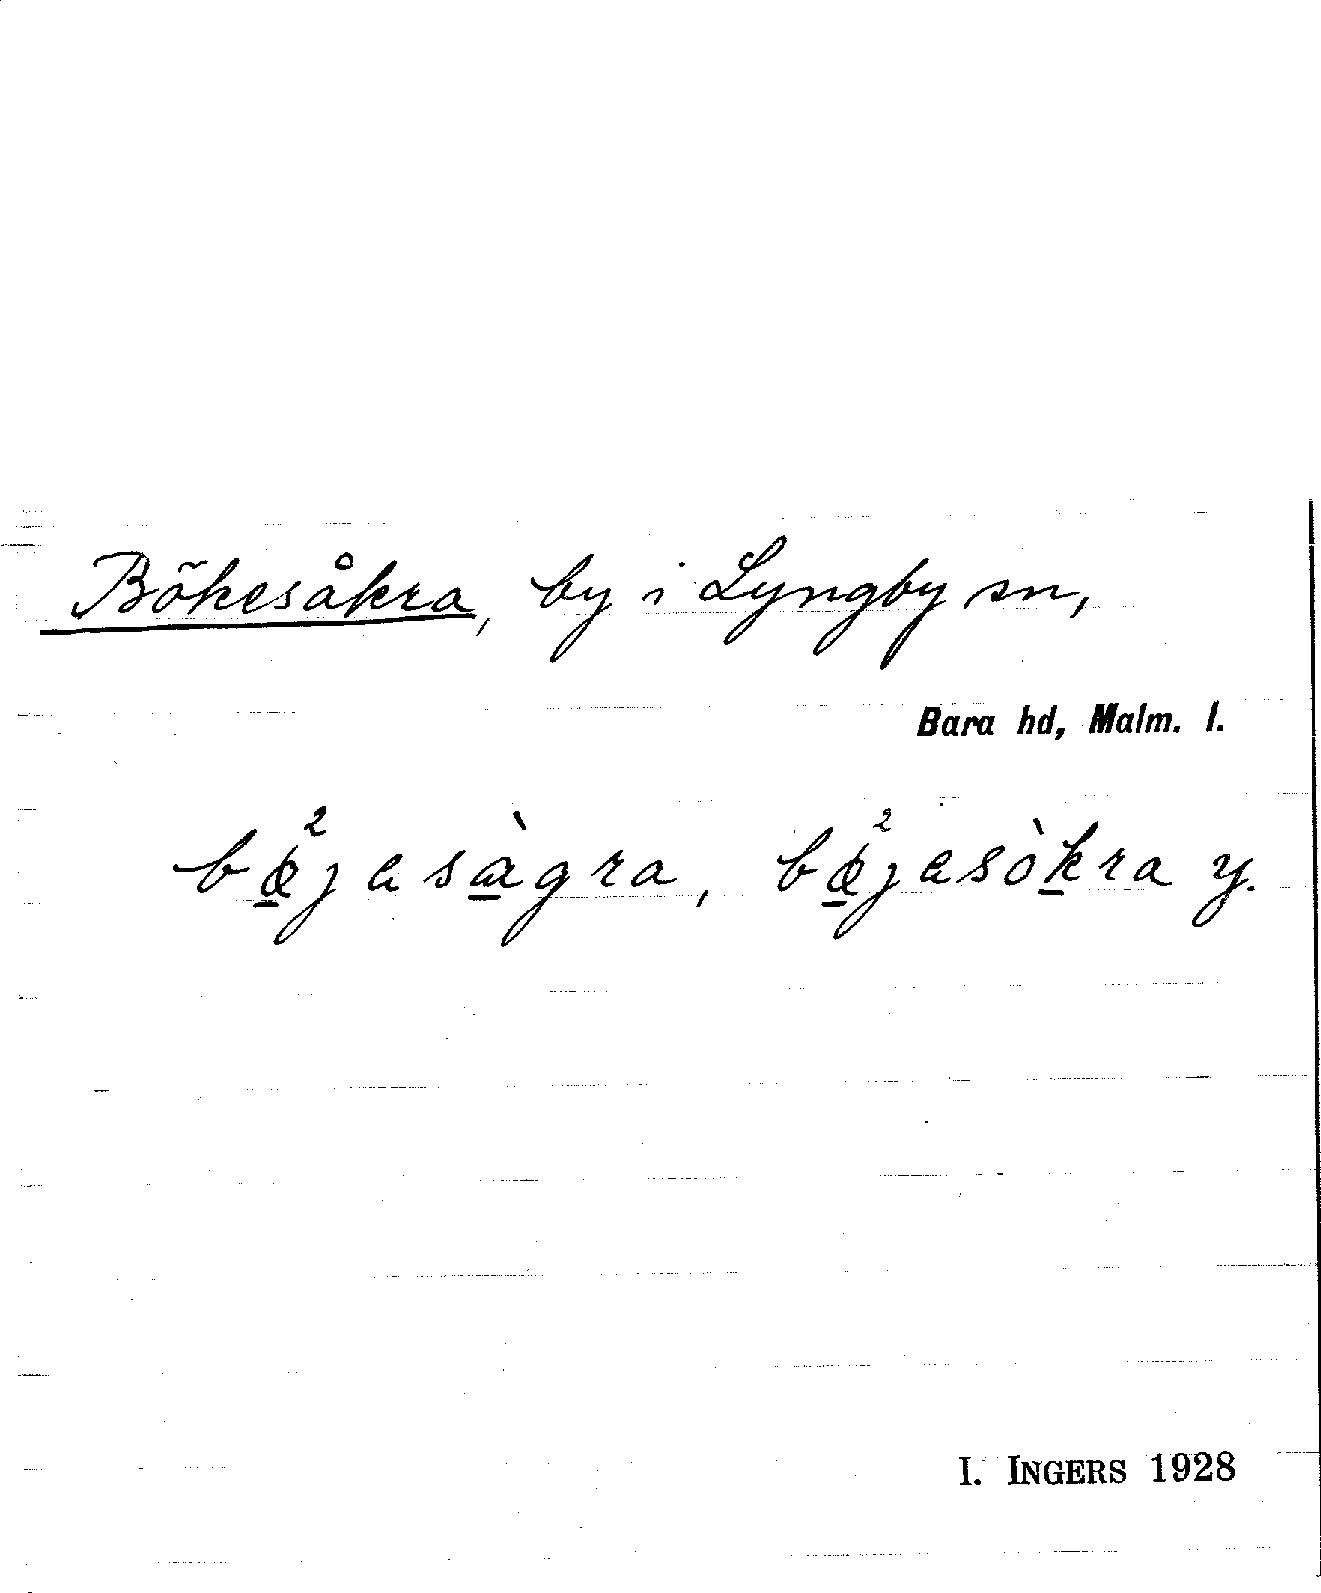 Bökesåkra, by i Lyngby sn,
Bara hd, Malm. l.
bœ̠²jasàgra, bœ̠²jasòḵra y.
I. INGERS 1928